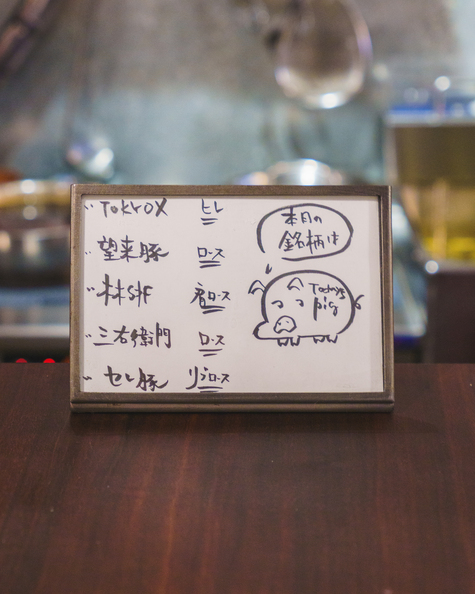 TOKYO X ヒレ
望来豚 ロース
林SPF 肩ロース
三右衛門 ロース
セレ豚 リブロース
本日の
銘柄は
Today's
pig